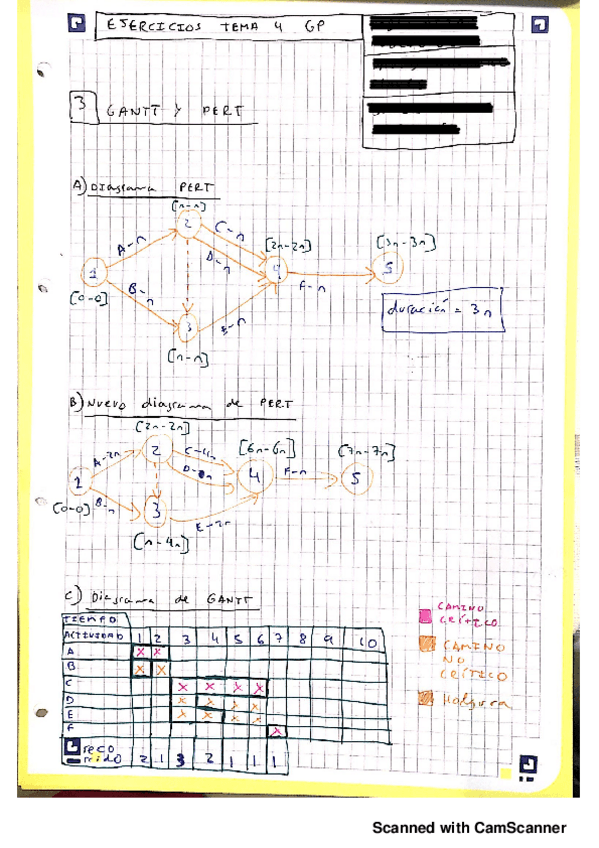 EJERCICIOS TEMA 4 GP
3 GANTT Y PERT
A) Diagrama PERT
[n-n]
2
C-n
[2n-2n]
[3n-3n]
A-n
D-n
1
4
5
F-n
[0-0]
B-n
duración = 3n
3
E-n
[n-n]
B) Nuevo diagrama de PERT
[2n-2n]
[6n-6n]
[7n-7n]
A-2n
2
C-4n
F-n
1
4
5
[0-0]
B-n
3
E-2n
[n-4n]
C) Diagrama de GANTT
CAMINO CRÍTICO
TIEMPO
ACTIVIDAD 1 2 3 4 5 6 7 8 9 10
CAMINO
NO
CRÍTICO
A X X
B X X
C X X X X
Holgura
D X X X X
E X X X X
F X
reco
mido 2 1 3 2 1 1 1
Scanned with CamScanner